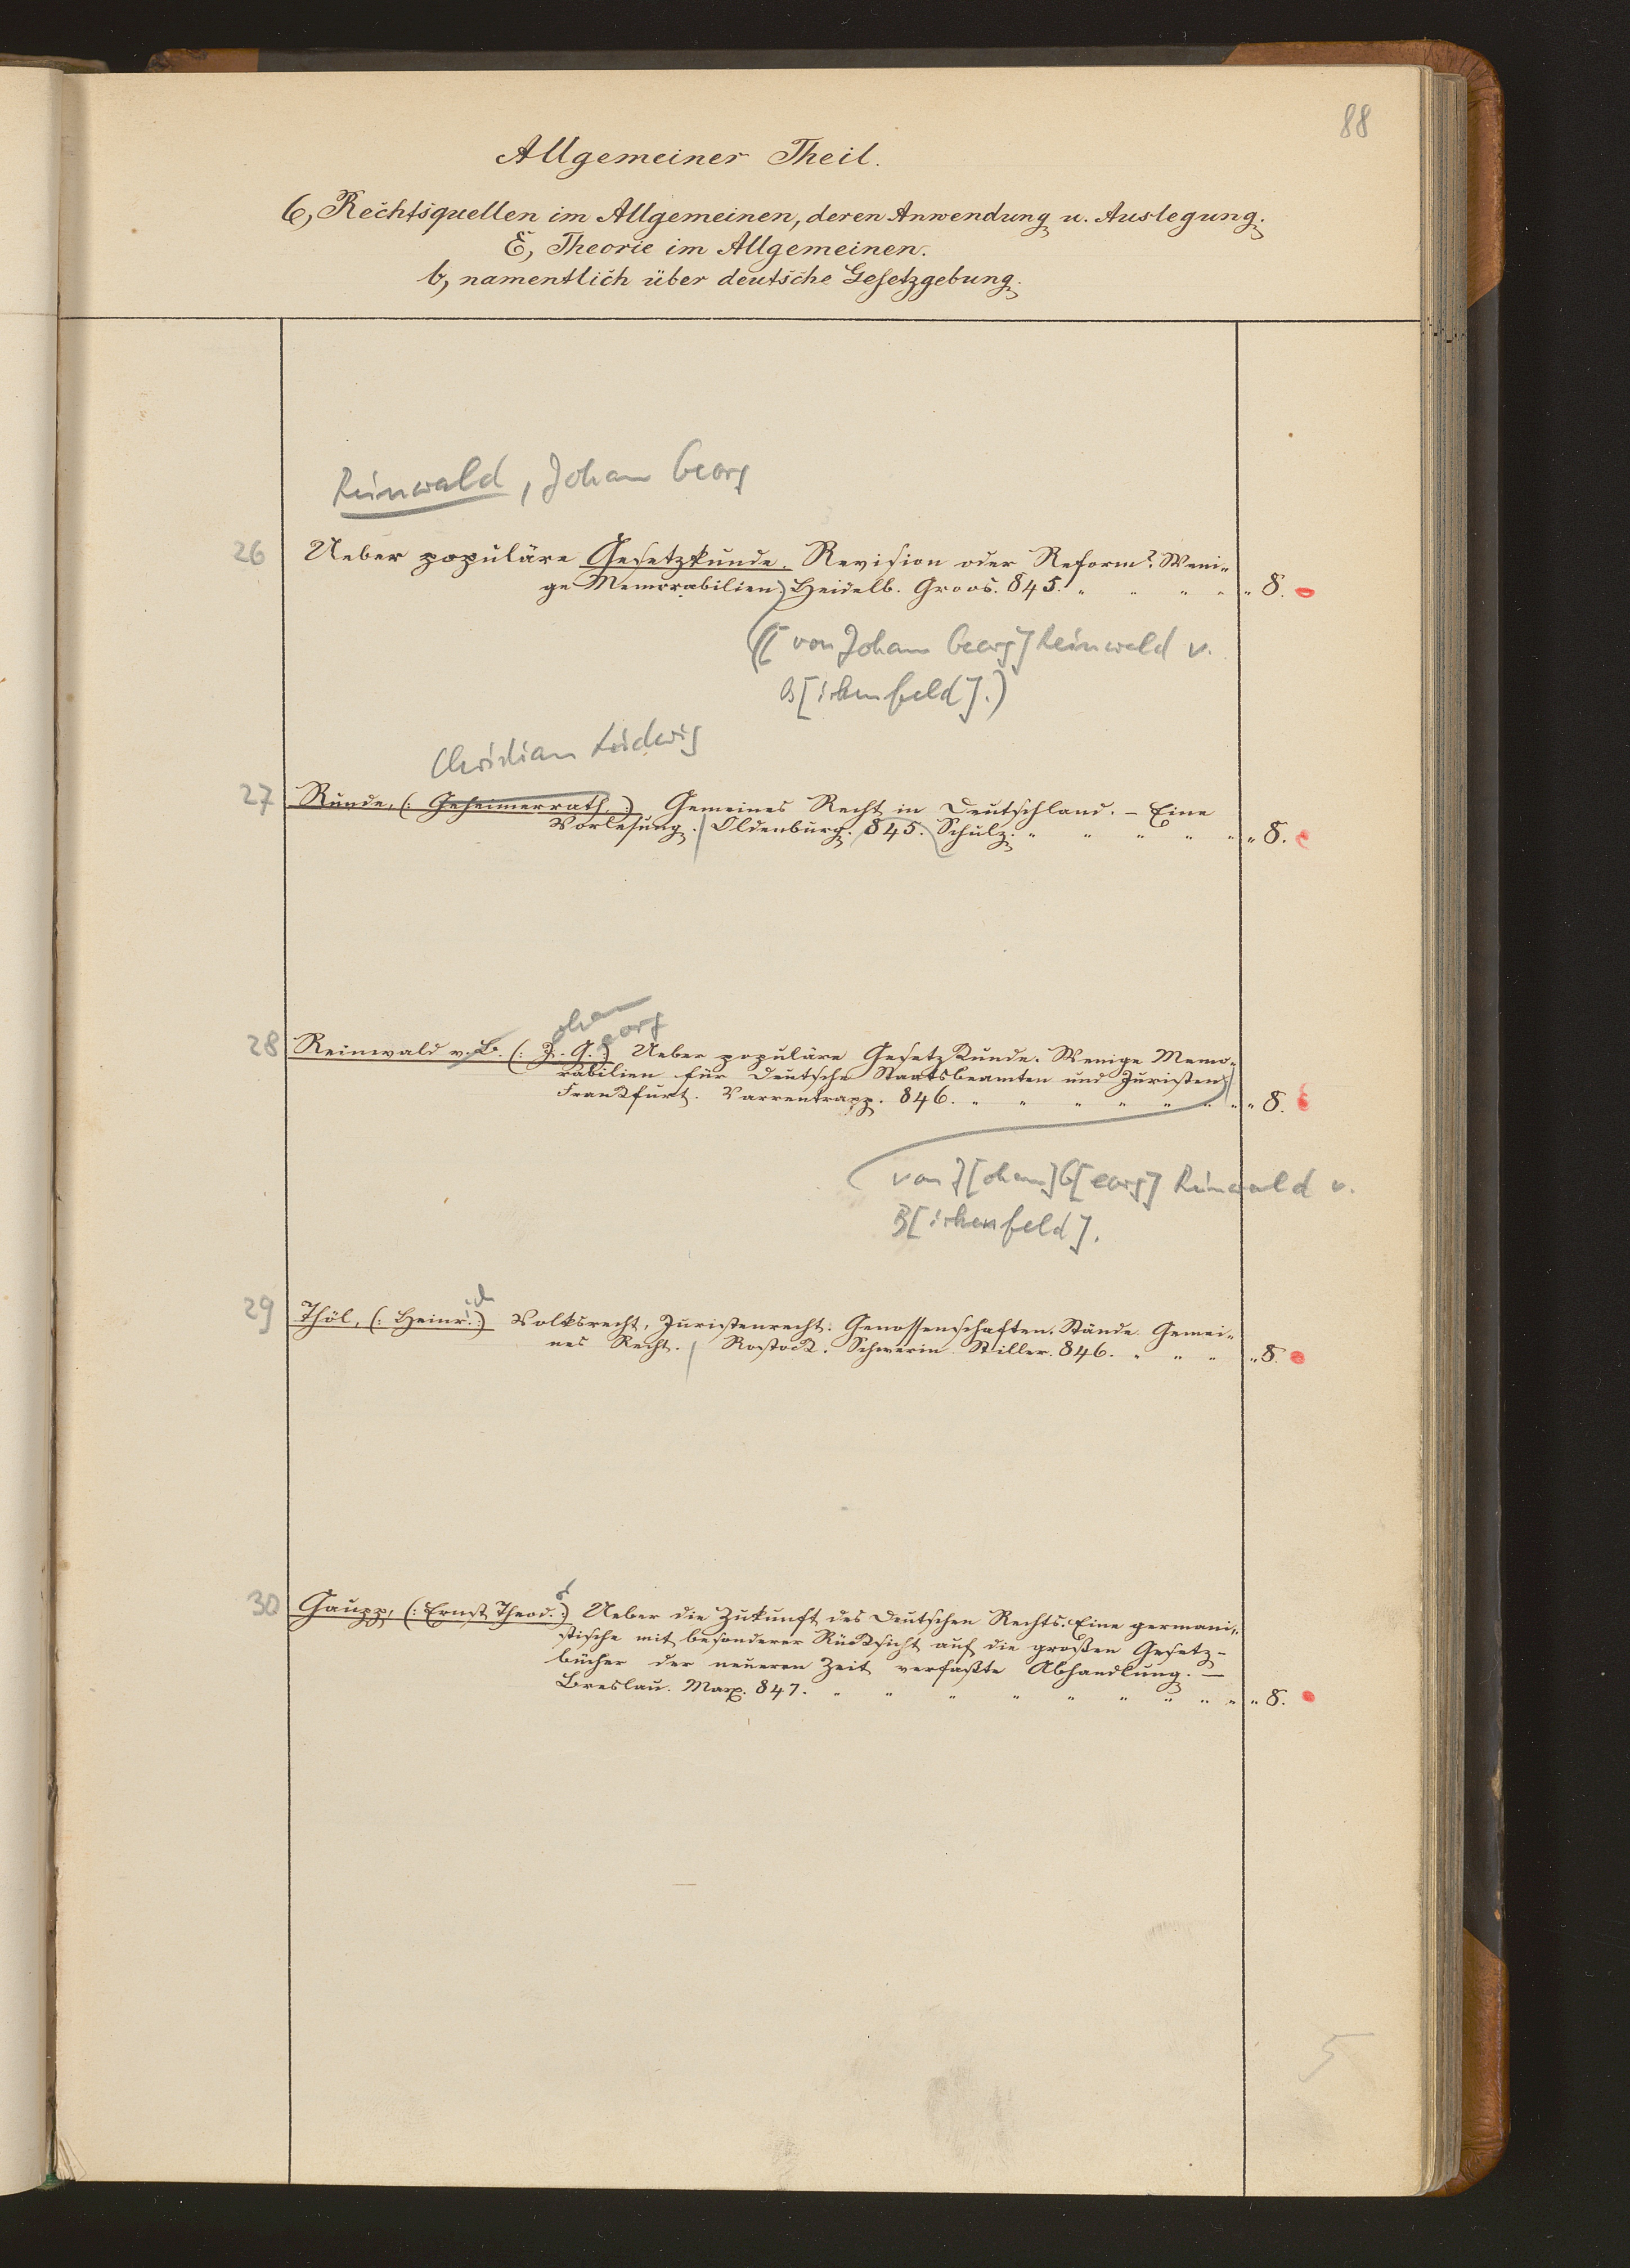 88
Allgemeiner Theil.
6, Rechtsquellen im Allgemeinen, deren Anwendung u. Auslegung.
E, Theorie im Allgemeinen.
b, namentlich über deutsche Gesetzgebung.
Reinwald, Johann Georg
26 Ueber populäre Gesetzkunde. Revision oder Reform? Weni-
ge Memorabilien) Heidelb. Groos. 845. " " " " " 8.
([von Johann Georg] Reinwald v.
B[irkenfeld].)
Christian Ludwig
27 Runde, (: Geheimerrath, :) Gemeines Recht in Deutschland. – Eine
Vorlesung. | Oldenburg. 845. Schulz. " " " " " " 8.
ohann eorg
28 Reinwald v. B. (: J. G. :) Ueber populäre Gesetzkunde. Wenige Memo-
rabilien für deutsche Staatsbeamten und Juristen)
Frankfurt. Varrentrapp. 846. " " " " " " " " 8.
von J[ohann] G[eorg] Reinwald v.
B[irkenfeld].
29 Thöl, (: Heinr. :) Volksrecht, Juristenrecht. Genossenschaften. Stände. Gemei-
nes Recht. | Rostock. Schwerin. Stiller. 846. " " " " 8.
30 Gaupp, (: Ernst Theod. :) Ueber die Zukunft des deutschen Rechts. Eine germani-
stische mit besonderer Rücksicht auf die großen Gesetz-
bücher der neueren Zeit verfaßte Abhandlung. –
Breslau. Max. 847. " " " " " " " " " " 8.
5